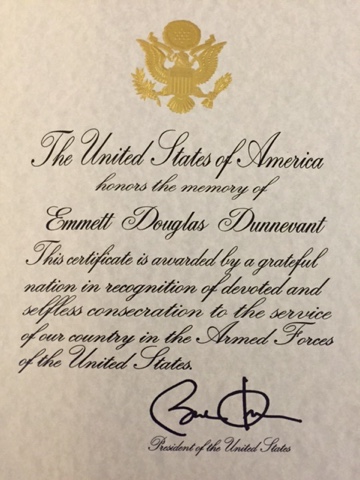 The United States of America
honors the memory of
Emmett Douglas Dunnevant
This certificate is awarded by a grateful
nation in recognition of devoted and
selfless consecration to the service
of our country in the Armed Forces
of the United States.
President of the United States